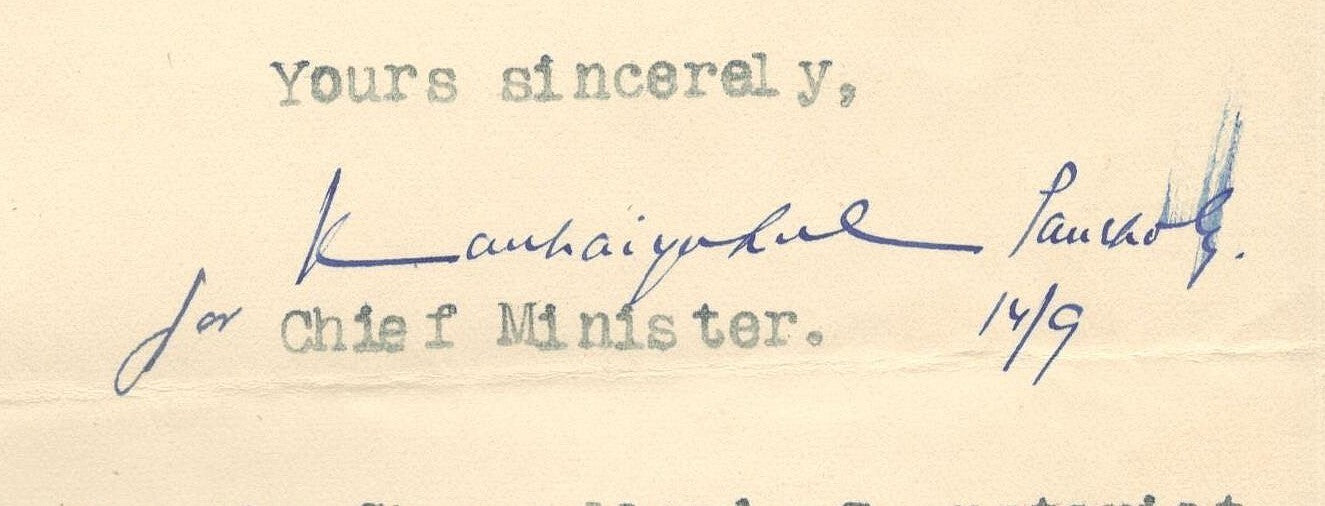 Yours sincerely,
Kanhaiyalal Pancholy.
for Chief Minister. 14/9